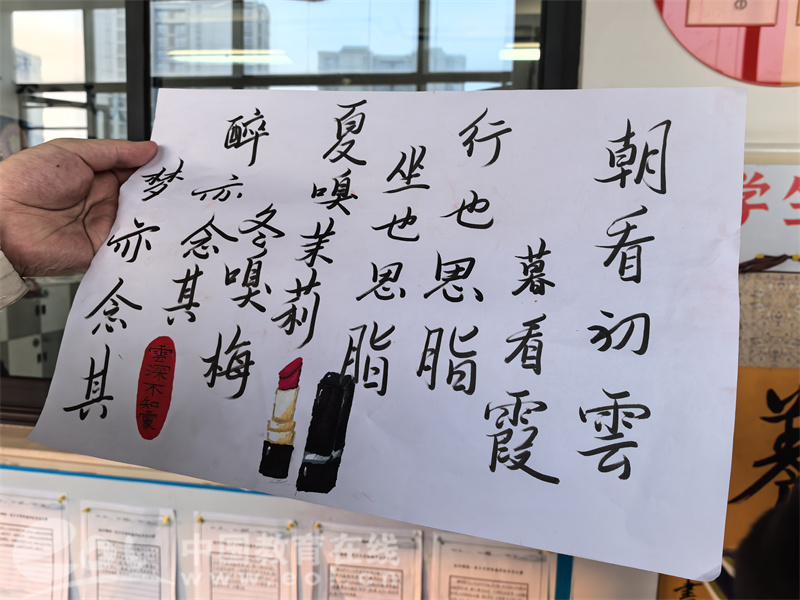 朝看初雲
暮看霞
行也思脂
坐也思脂
夏嗅茉莉
冬嗅梅
醉亦念其
梦亦念其
雲深不知處
学生
中国教育在线
www.eol.cn